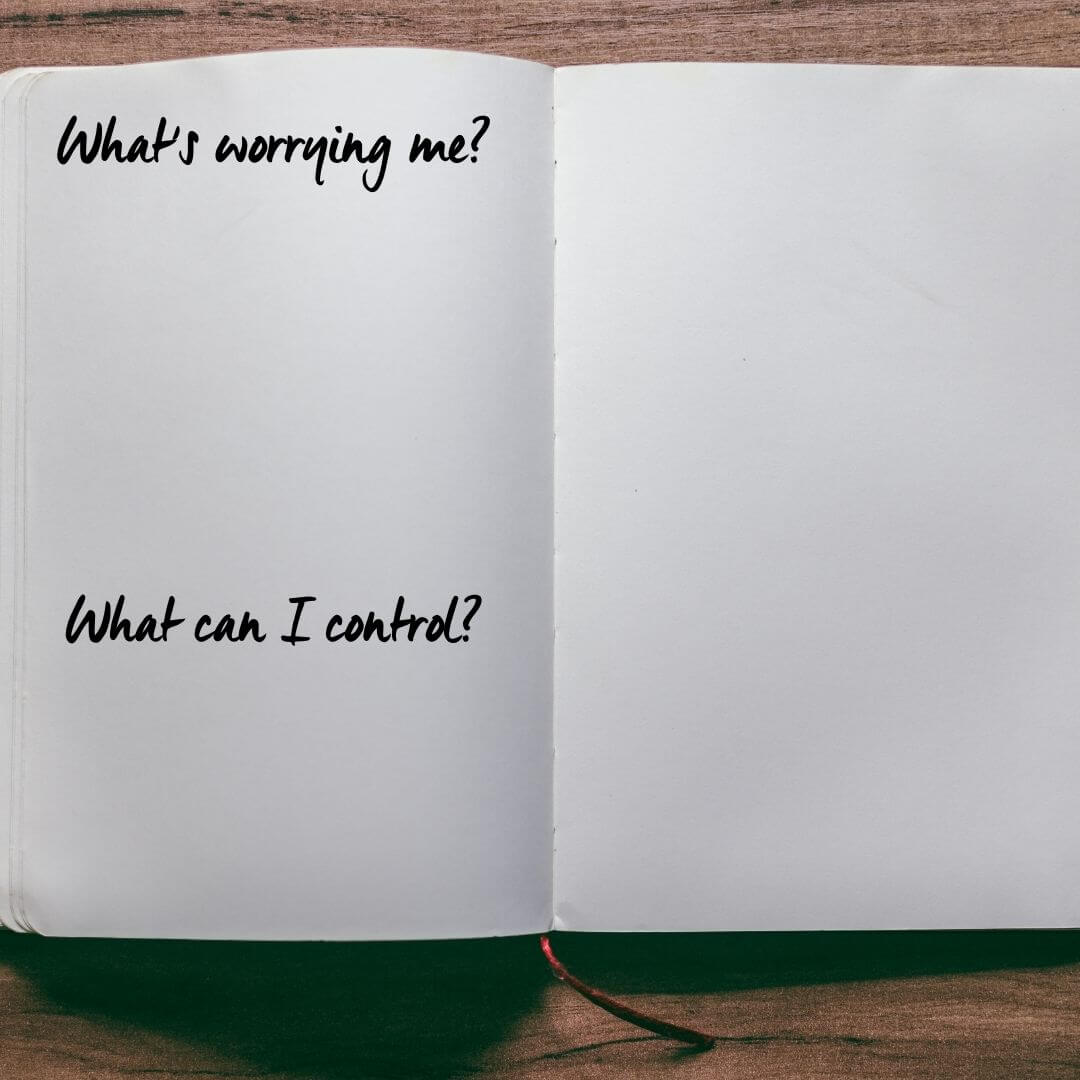 What's worrying me?
What can I control?